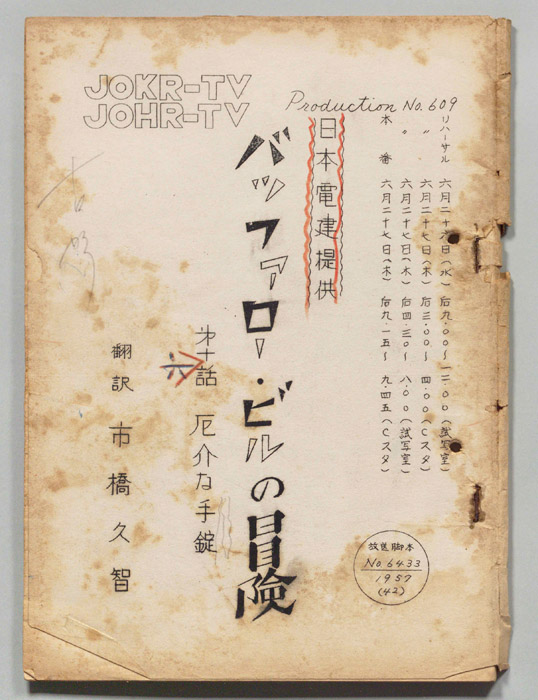 JOKR-TV
JOHR-TV
Production No. 609
リハーサル 六月二十六日(水) 后九.〇〇〜一二.〇〇(試写室)
〃 六月二十七日(木) 后三.〇〇〜四.〇〇(Cスタ)
〃 六月二十七日(木) 后四.三〇〜八.〇〇(試写室)
本番 六月二十七日(木) 后九.一五〜九.四五(Cスタ)
日本電建提供
バッファロー・ビルの冒険
第十六話 厄介な手錠
翻訳 市橋久智
放送脚本
No.6433
1957
(42)